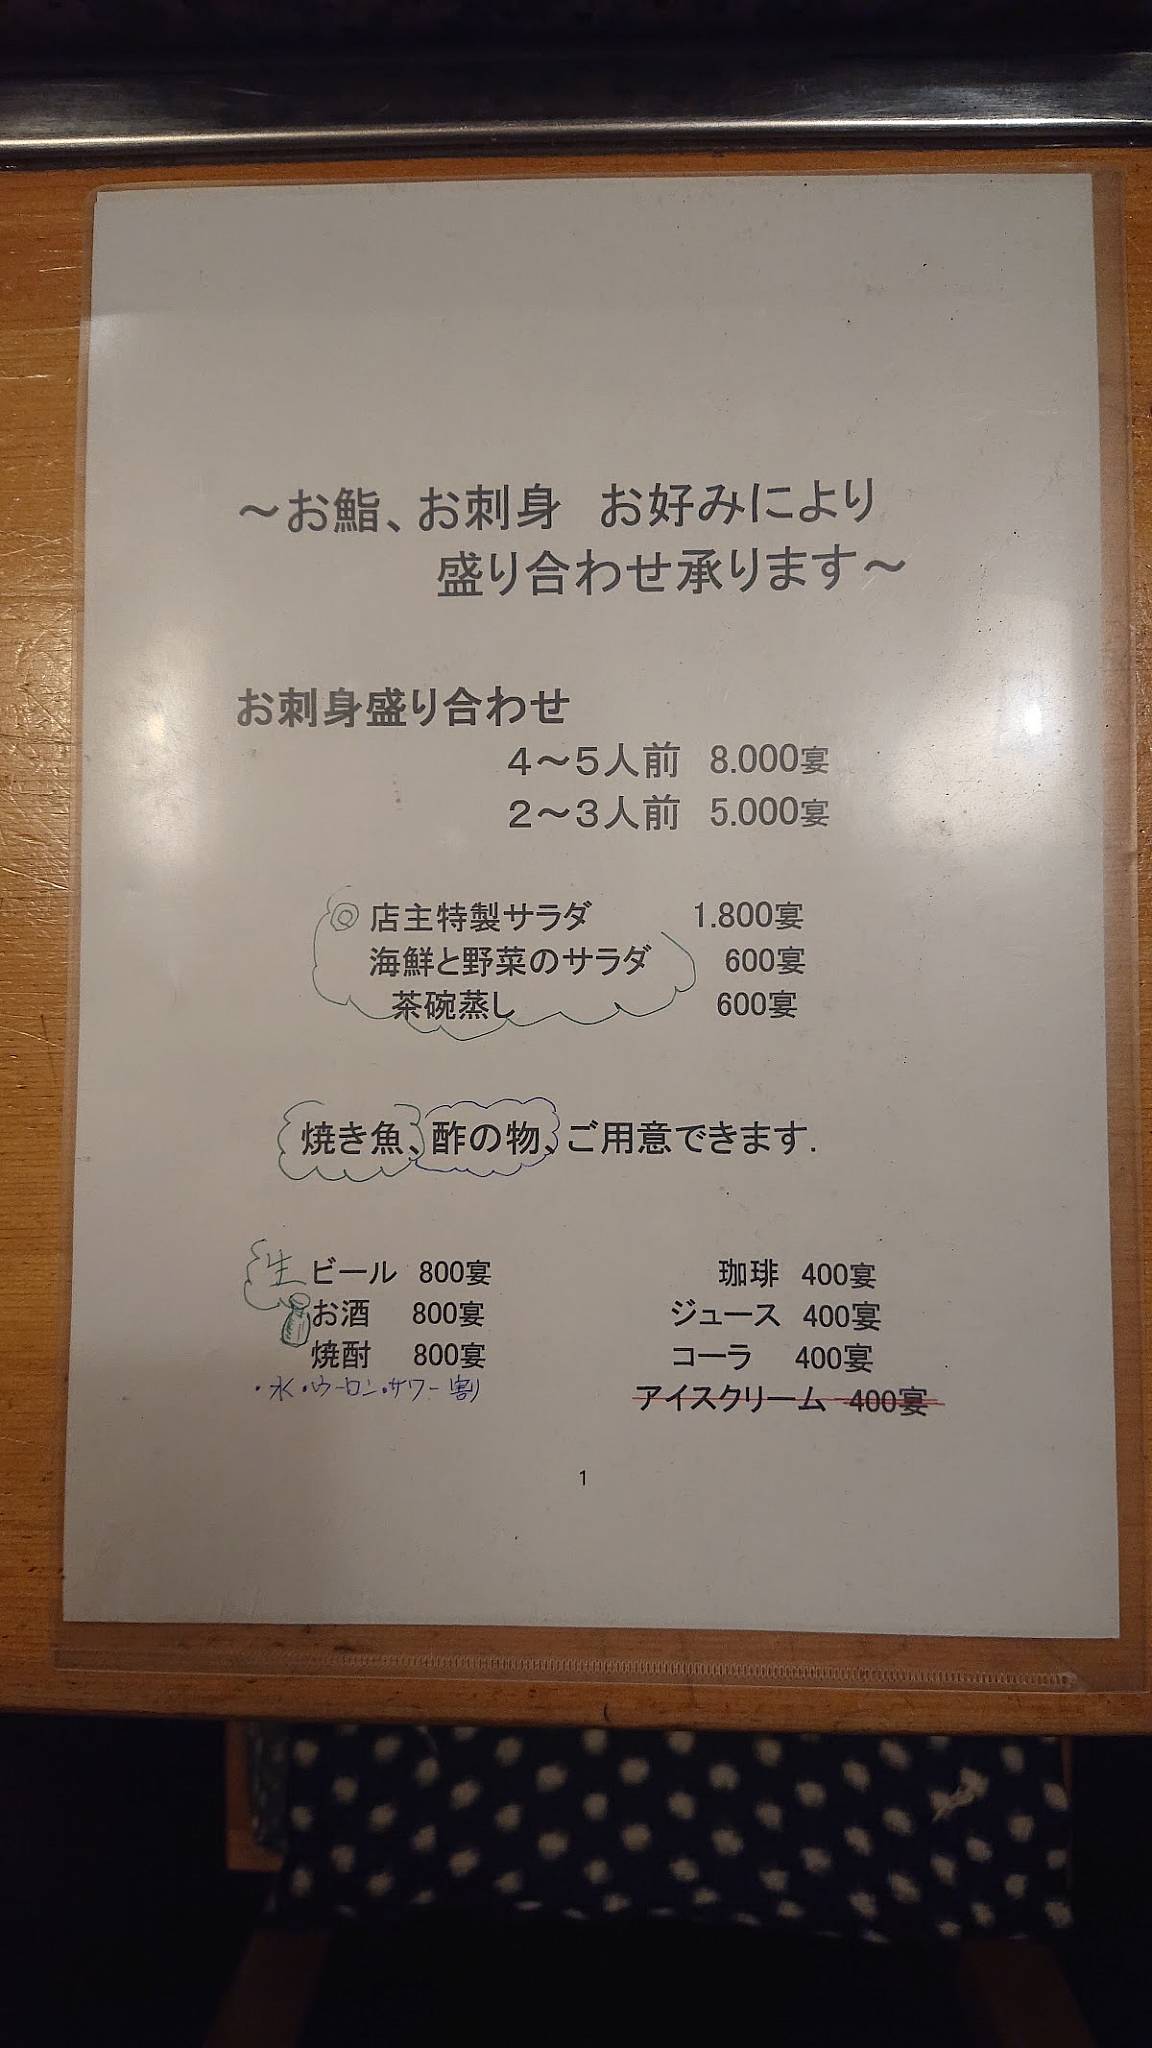 ～お鮨、お刺身　お好みにより
盛り合わせ承ります～
お刺身盛り合わせ
４～５人前 8.000宴
２～３人前 5.000宴
◎店主特製サラダ 1.800宴
海鮮と野菜のサラダ 600宴
茶碗蒸し 600宴
焼き魚、酢の物、ご用意できます.
生ビール 800宴
お酒 800宴
焼酎 800宴
・水・ウーロン・サワー割り
珈琲 400宴
ジュース 400宴
コーラ 400宴
アイスクリーム 400宴
1